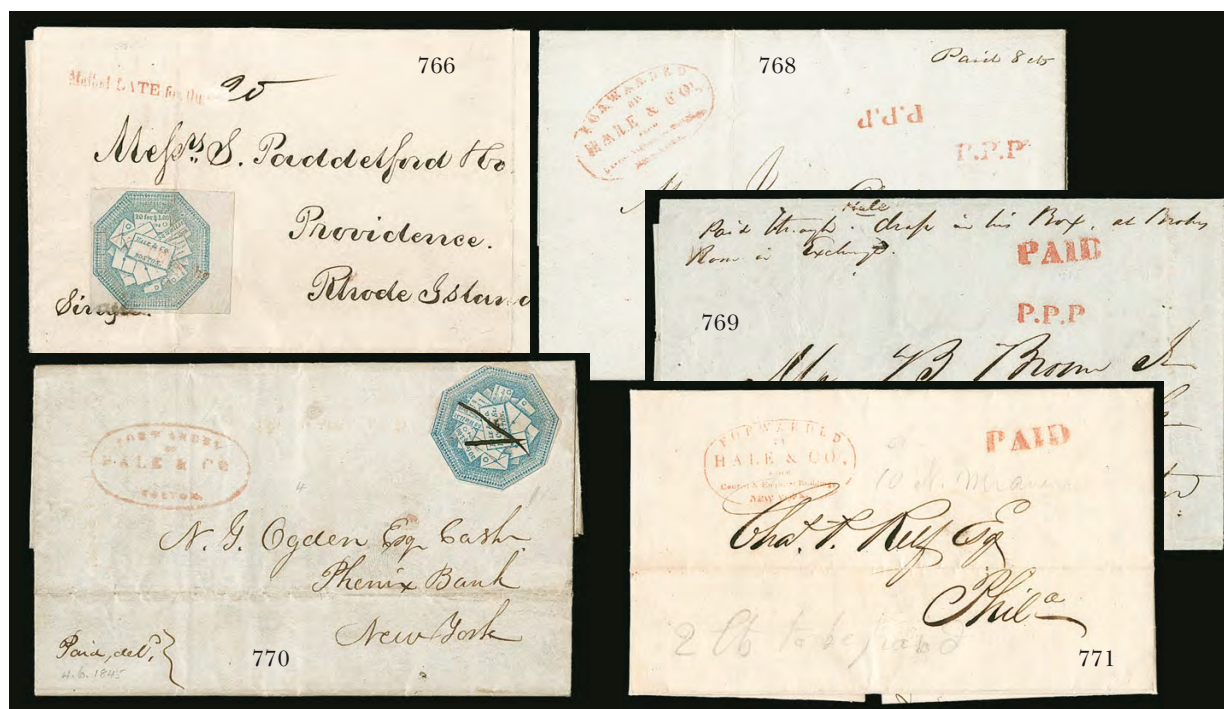 766
Mailed LATE for the
Mess.rs S. Paddelford & Co.
Providence.
Rhode Island
20 for $1.00
HALE & CO.
BOSTON
Single.
768
Paid 8 cts
FORWARDED
BY
HALE & CO.
P.P.P
P.P.P
769
Hale
Paid through. drop in his Box, at Brokers
Room in Exchange.
PAID
P.P.P
B Brown Jr
770
FORWARDED
BY
HALE & CO
BOSTON.
N. G. Ogden Esq. Cash.
Phenix Bank
New York
Paid, del'd.
4.6.1845
771
FORWARDED
BY
HALE & CO.
FROM
NEW YORK.
PAID
Chas. P. Relf Esq
Phila
2 Cts to be paid